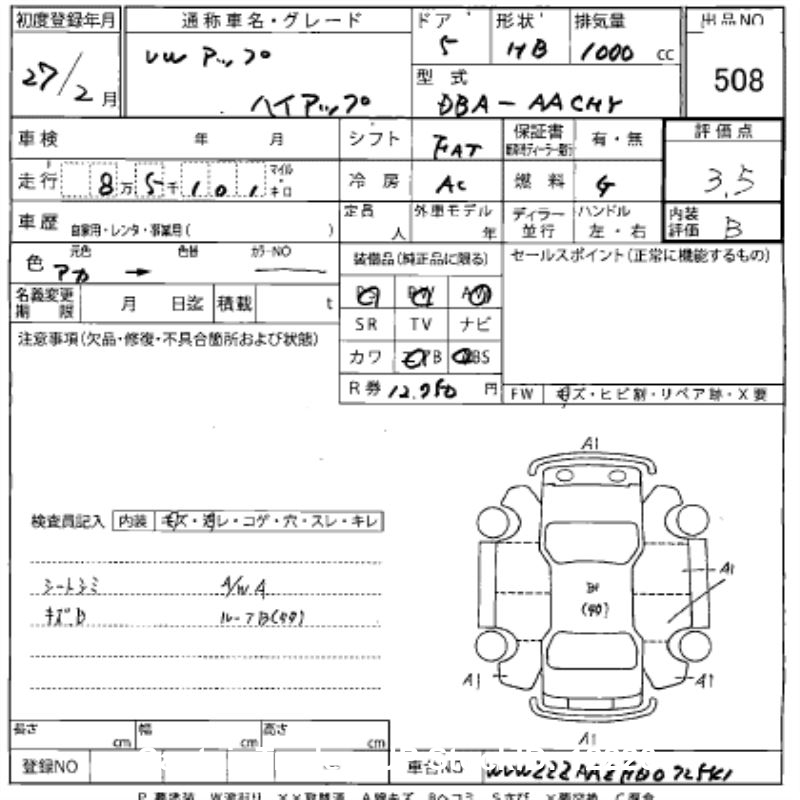 初度登録年月 通称車名・グレード ドア 形状 排気量 出品NO
27/2月 VW アップ 5 HB 1000 cc 508
ハイアップ 型式 DBA-AACHY
車検 年 月 シフト FAT 保証書 有・無 評価点
走行 8万5千101 マイル・キロ 冷房 AC 燃料 G 3.5
車歴 自家用・レンタ・事業用( ) 定員 人 外車モデル 年 ディラー並行 ハンドル 左・右 内装評価 B
色 元色 色替 カラーNO 装備品(純正品に限る) セールスポイント(正常に機能するもの)
アカ →
名義変更期限 月 日迄 積載 t
注意事項(欠品・修復・不具合箇所および状態) SR TV ナビ
カワ
R券 12,950 円 FW キズ・ヒビ割・リペア跡・X要
A1
検査員記入 内装 キズ・汚レ・コゲ・穴・スレ・キレ
シートシミ A/W A
キズD ルーフB(凹)
B1
(凹)
A1
A1 A1
A1
長さ cm 幅 cm 高さ cm
登録NO 車台NO